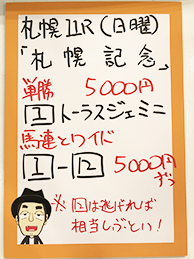 札幌11R(日曜)
「札幌記念」
単勝 5000円
1 トーラスジェミニ
馬連とワイド
1-2 5000円
ずつ
※2は逃げれば
相当しぶとい!